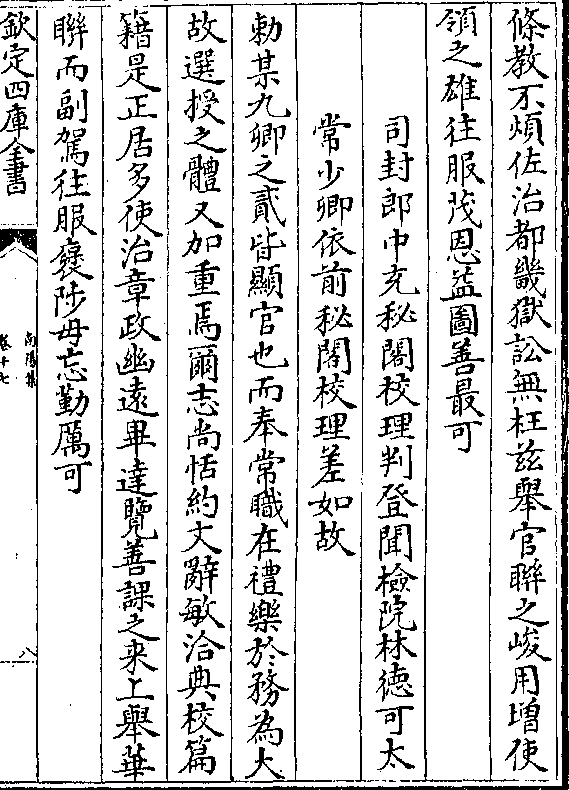 條教不煩佐治都畿獄訟無枉兹舉官聯之峻用增使
領之雄往服茂恩益圖善最可
司封郎中充秘閣校理判登聞檢院林徳可太
常少卿依前秘閣校理差如故
勅某九卿之貳皆顯官也而奉常職在禮樂於務為大
故選授之體又加重焉爾志尚恬約文辭敏洽典校篇
籍是正居多使治章政幽遠畢達覽善課之来上舉華
聨而副駕往服襃陟毋忘勤厲可
欽定四庫全書
南陽集
卷十七
八